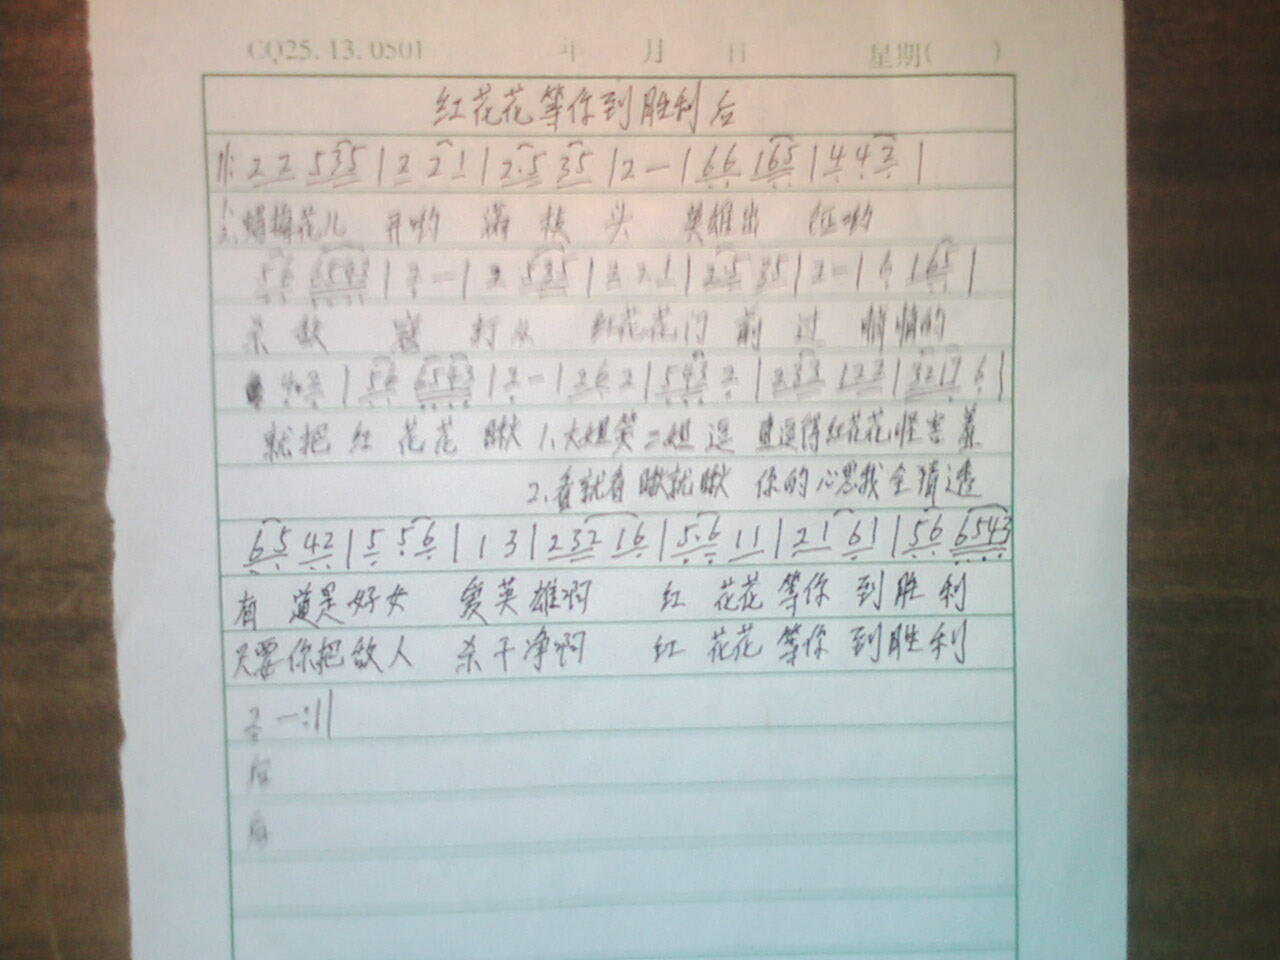 CQ25.13.0501 年 月 日 星期( )
红花花等你到胜利后
‖: 2 2 5 3 5 | 2 2 1 | 2·5 3 5 | 2 — | 6 6 1 6 5 | 4 4 2 |
蜡梅花儿 开哟 满枝头 英雄出征哟
5 6 6 5 4 3 | 2 — | 2 5 3 5 | 2 2 1 | 2·5 3 5 | 2 — | 6 1 6 5 |
杀敌寇 打从 红花花门前过 悄悄的
4·2 | 5 6 6 5 4 3 | 2 — | 2 6 2 | 5 4 3 2 | 2 3 3 1 2 2 | 3 2 1 7 6 |
就把红花花瞅 1.大姐笑二姐逗 逗得红花花怪害羞
2.看就看瞅就瞅 你的心思我全猜透
6 5 4 2 | 5 5·6 | 1 3 | 2 3 2 1 6 | 5·6 1 1 | 2 1 6 1 | 5 6 6 5 4 3
有道是好女 爱英雄啊 红花花等你到胜利
只要你把敌人 杀干净啊 红花花等你到胜利
2 — :‖
后
后